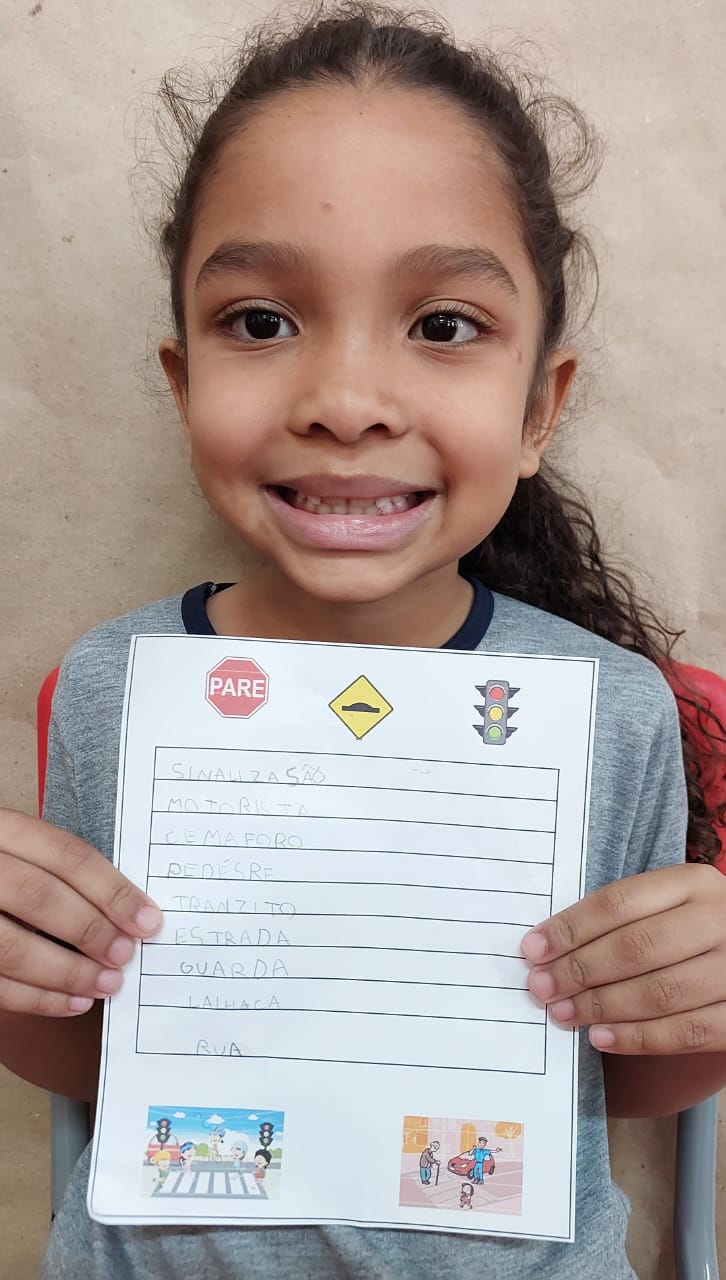 PARE
SINALIZASÃO
MOTORISTA
CEMAFORO
PEDÉSRE
TRANZITO
ESTRADA
GUARDA
RUA